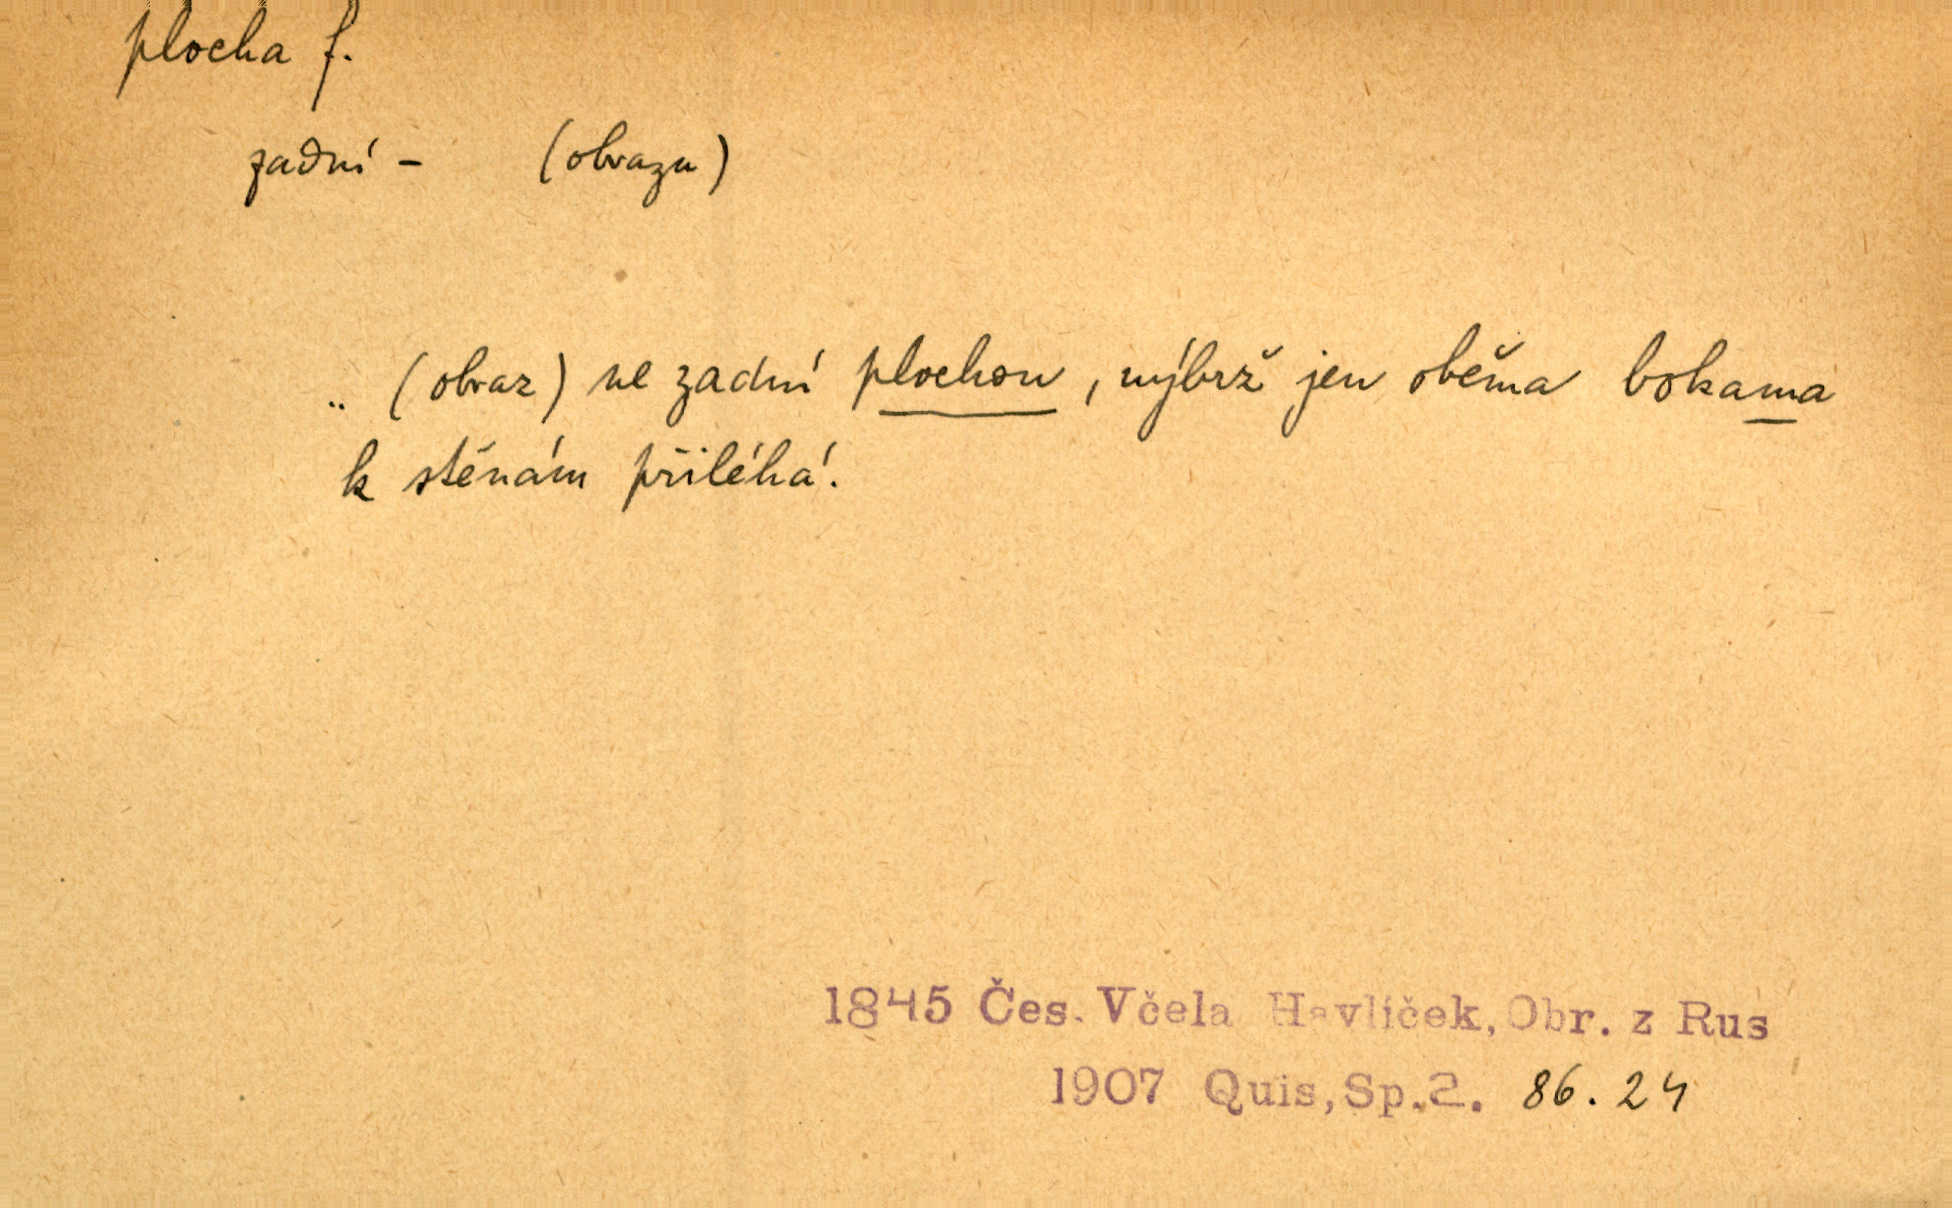 plocha f.
zadní – (obrazu)
.. (obraz) ne zadní plochou, nýbrž jen oběma bokama
k stěnám přiléhá.
1845 Čes. Včela Havlíček, Obr. z Rus
1907 Quis, Sp. 2. 86. 24